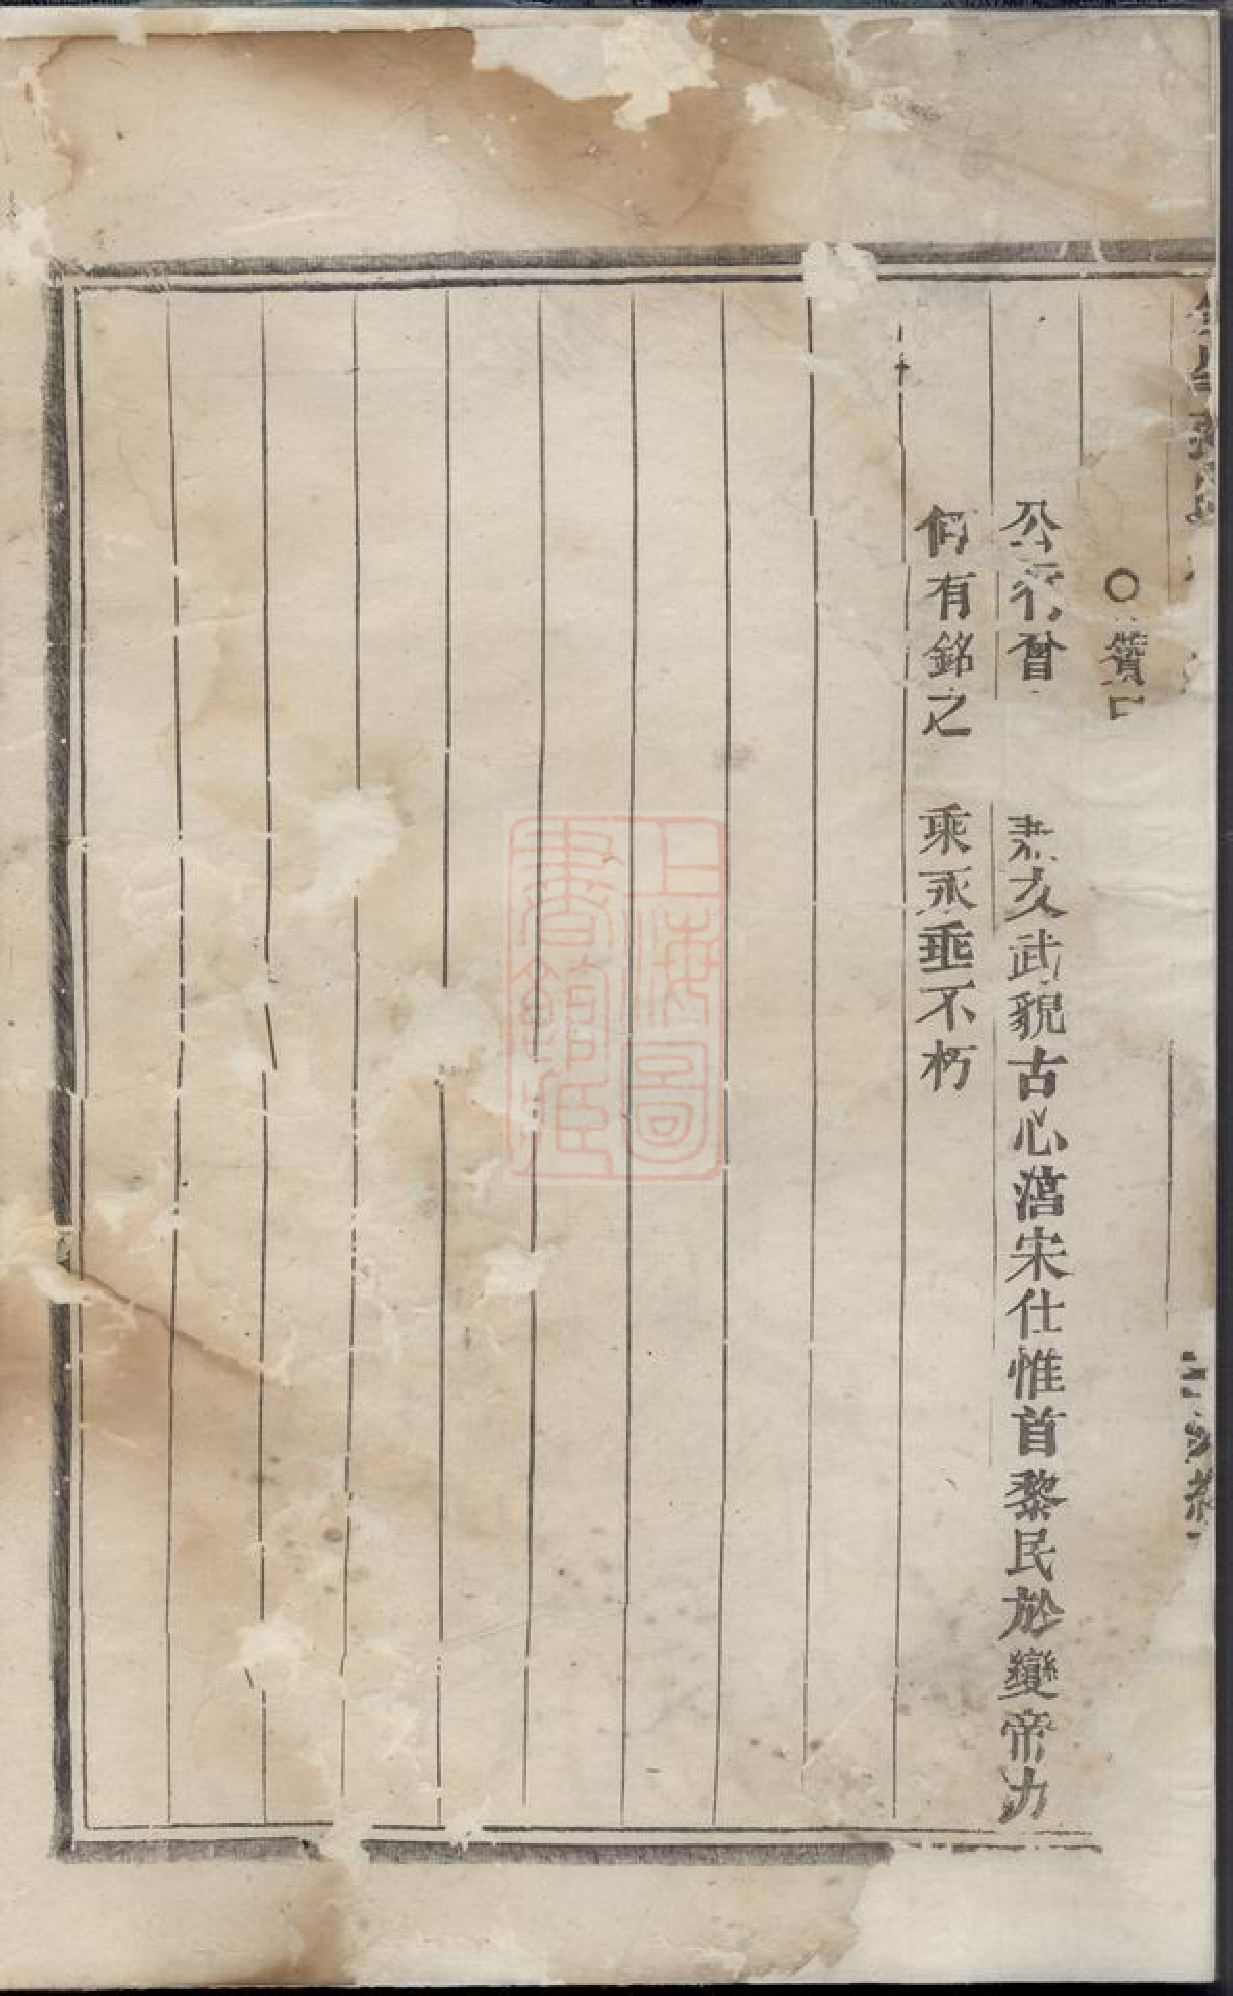 ○贊曰
公行曾 恭文武貌古心澹宋仕惟首黎民於變帝力
何有銘之 乘永垂不朽
上海圖書館藏